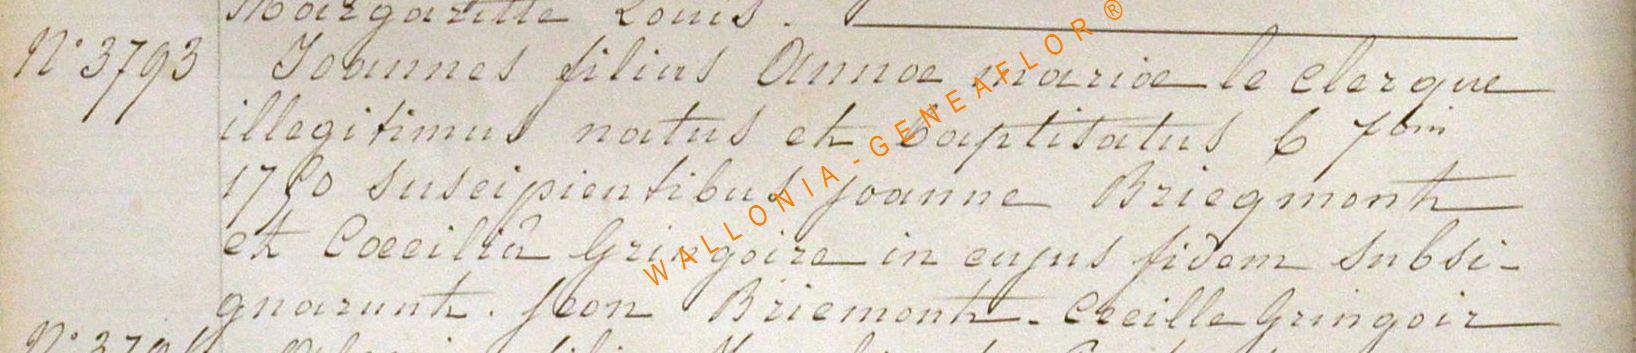 Margaritte Louis.
N° 3793 Joannes filius Annae mariae le clerque
illegitimus natus et baptisatus 6 7bris
1780 suscipientibus joanne Briegmont
et Caecilia Gringoire in cujus fidem subsi-
gnarunt. Jean Briemont. Cecille Gringoir
WALLONIA-GENEAFLOR®